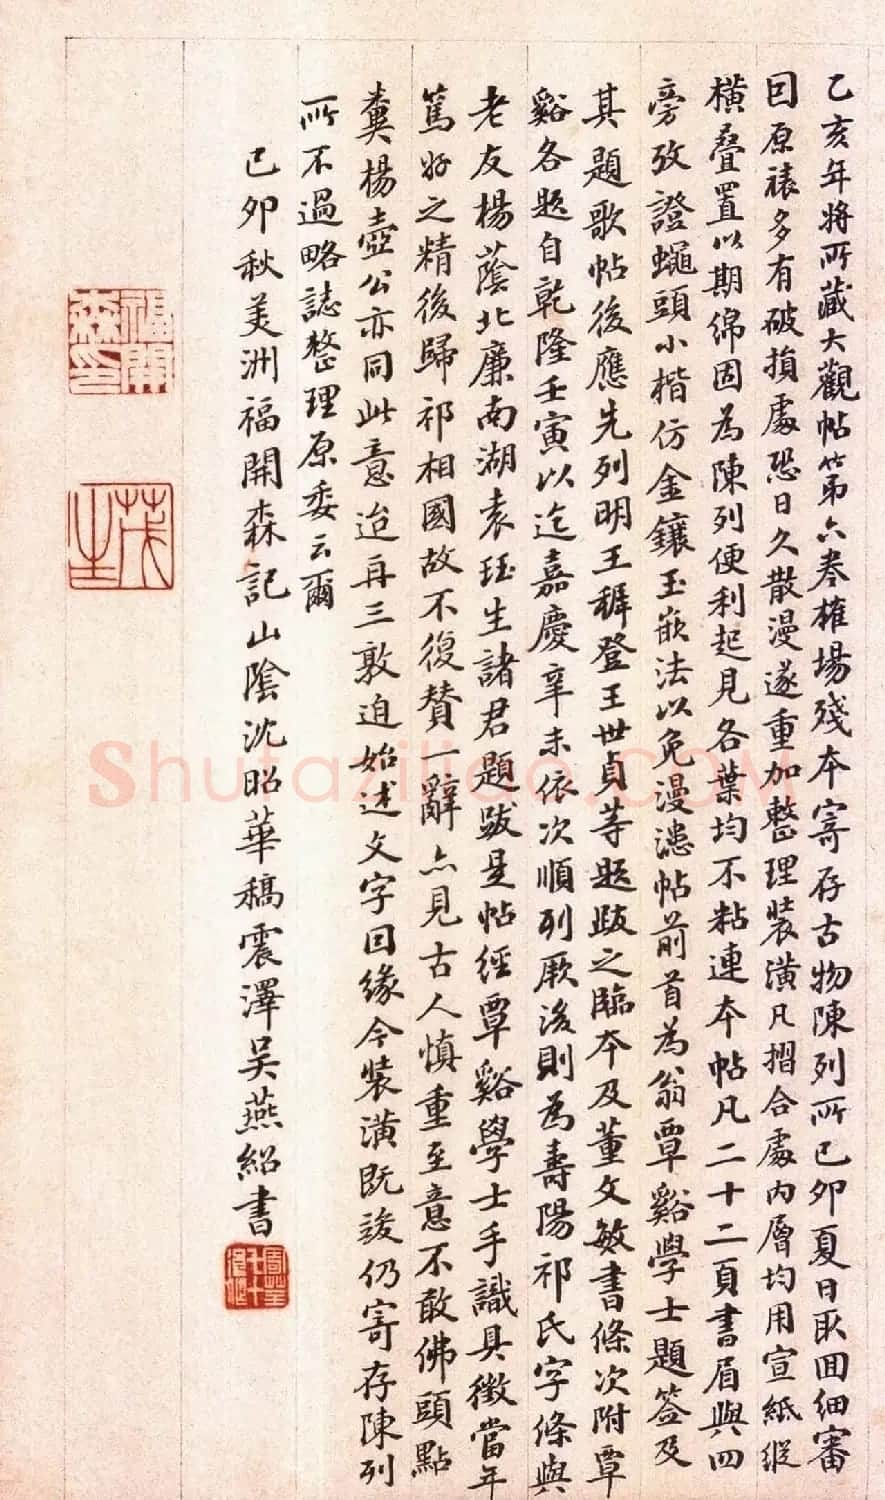 乙亥年將所藏大觀帖第六卷榷場殘本寄存古物陳列所己卯夏日取回細審
回原裱多有破損處恐日久散漫遂重加整理裝潢凡摺合處內層均用宣紙縱
橫疊置以期綿固為陳列便利起見各葉均不粘連本帖凡二十二頁書眉與四
旁攷證蠅頭小楷仿金鑲玉嵌法以免漫漶帖前首為翁覃谿學士題签及
其題歌帖後應先列明王穉登王世貞等題跋之臨本及董文敏書條次附覃
谿各題自乾隆壬寅以迄嘉慶辛未依次順列厥後則為壽陽祁氏字條與
老友楊蔭北廉南湖袁珏生諸君題跋是帖經覃谿學士手識具徵當年
篤好之精後歸祁相國故不復贊一辭亦見古人慎重至意不敢佛頭點
糞楊壺公亦同此意迨再三敦迫始述文字因緣今裝潢既竣仍寄存陳列
所不過略誌整理原委云爾
己卯秋美洲福開森記山陰沈昭華稿震澤吳燕紹書
福開森印
茂生
Shufaziliao.COM